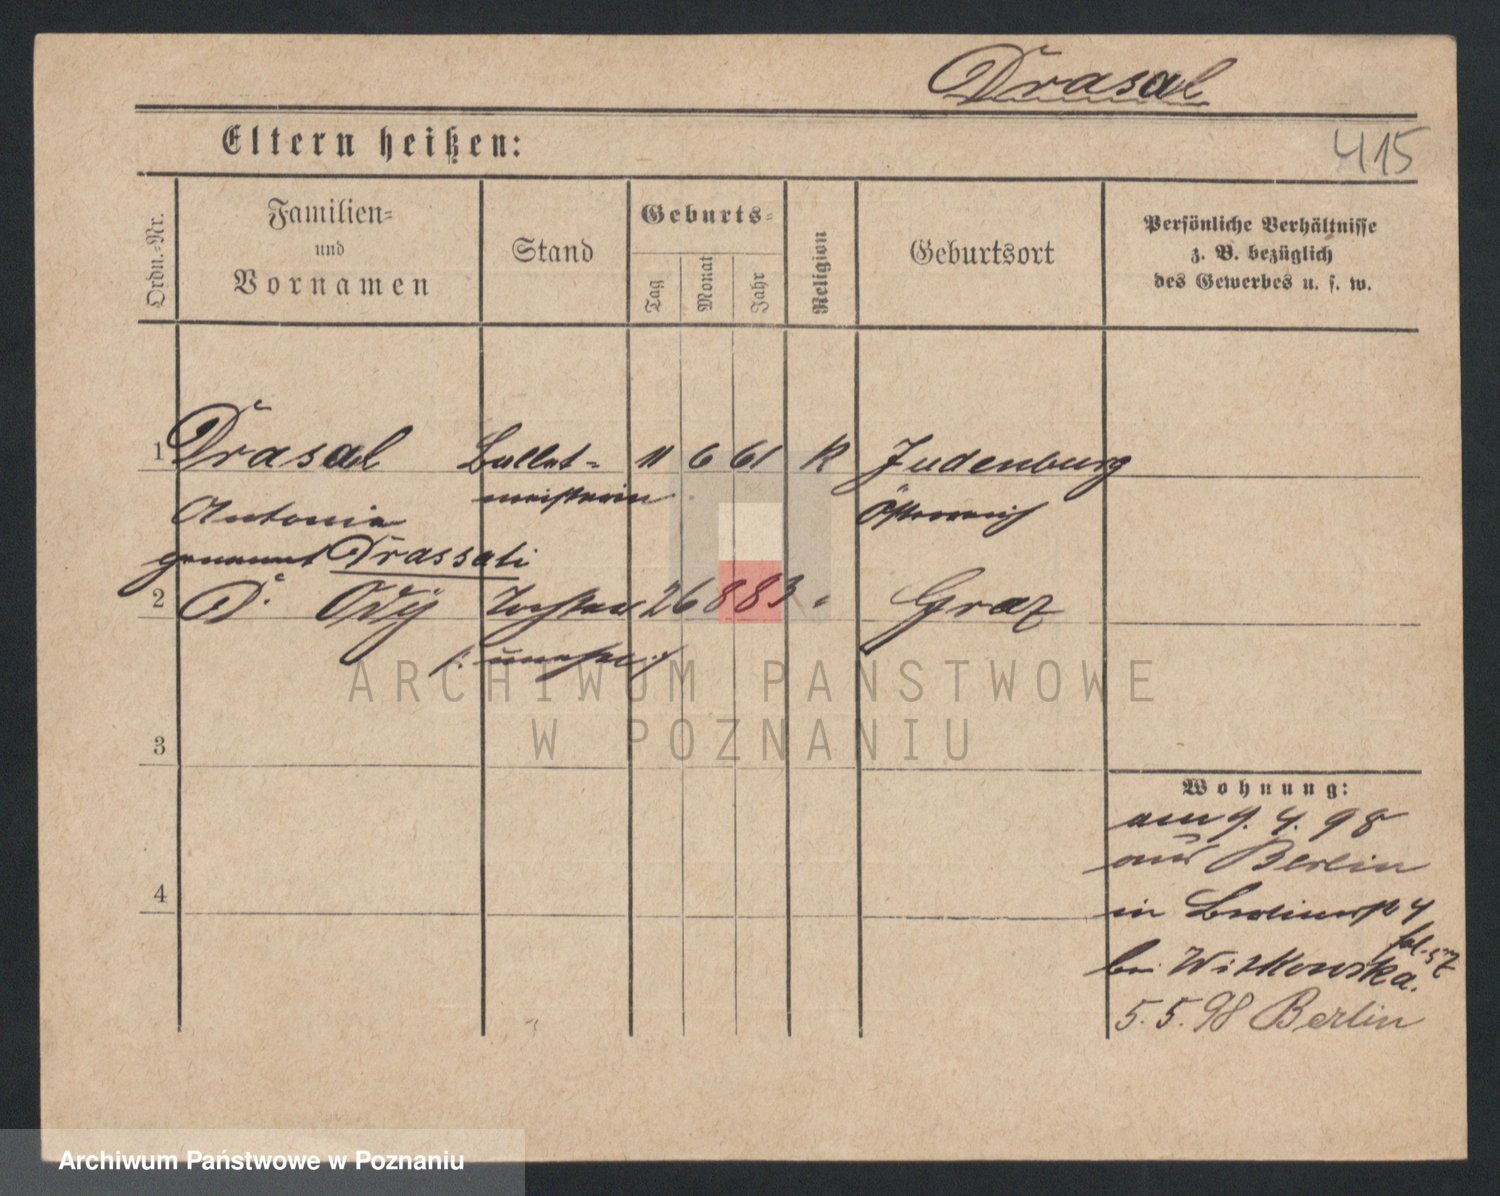 Drasal
Eltern heißen:
415
Ordn.-Nr.
Familien-
und
Vornamen
Stand
Geburts-
Tag
Monat
Jahr
Religion
Geburtsort
Persönliche Verhältnisse
z. B. bezüglich
des Gewerbes u. s. w.
1 Drasal Ballet- 11 6 61 K Judenburg
meisterin
Antonia Österreich
genannt Drassati
2 D. Tochter 26 8 83 " Graz
/: unehel :/
3
4
Wohnung:
am 9. 4. 98
aus Berlin
in Berlinerstr 4
bei Witkowska.
5. 5. 98 Berlin
ARCHIWUM PAŃSTWOWE
W POZNANIU
Archiwum Państwowe w Poznaniu